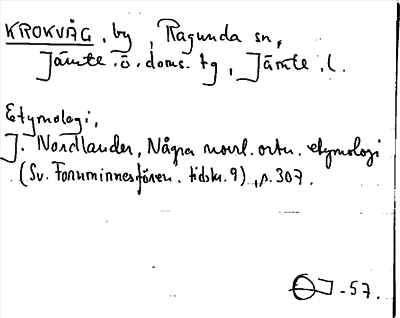 KROKVÅG, by, Ragunda sn,
Jämte. ö. doms. tg, Jämte. l.
Etymologi,
J. Nordlander, Några norrl. ortn. etymologi
(Sv. Fornminnesfören. tidskr. 9), s. 307.
J-57.